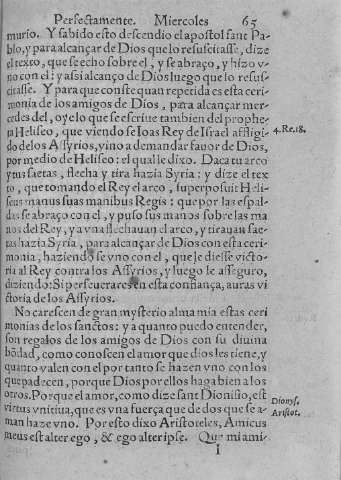 Perfectamente. Miercoles 65
murio. Y sabido esto descendio el apostol sant Pa-
blo, y para alcançar de Dios que lo resuscitasse, dize
el texto, que se echo sobre el, y se abraço, y hizo v-
no con el: y assi alcanço de Dios luego que lo resus-
citasse. Y para que conste quan repetida es esta ceri-
monia de los amigos de Dios, para alcançar mer-
cedes del, oye lo que se escriue tambien del prophe-
ta Heliseo, que viendose Ioas Rey de Israel afligi- 4.Re.18.
do de los Assyrios, vino a demandar fauor de Dios,
por medio de Heliseo: el qual le dixo. Daca tu arco
y tus saetas, flecha y tira hazia Syria: y dize el tex
to, que tomando el Rey el arco, superposuit Heli-
seus manus suas manibus Regis: que por las espal-
das se abraço con el, y puso sus manos sobre las ma
nos del Rey, y a vna flechauan el arco, y tirauan sae-
tas hazia Syria, para alcançar de Dios con esta ceri-
monia, haziendose vno con el, que le diesse victo-
ria al Rey contra los Assyrios, y luego le asseguro,
diziendo: Si perseuerares en esta confiança, auras vi
ctoria de los Assyrios.
No carescen de gran mysterio alma mia estas ceri
monias de los sanctos: y a quanto puedo entender,
son regalos de los amigos de Dios con su diuina
bõdad, como conoscen el amor que dios les tiene, y
quanto valen con el por tanto se hazen vno con los
que padecen, porque Dios por ellos haga bien a los
otros. Porque el amor, como dize sant Dionisio, est Dionys.
virtus vnitiua, que es vna fuerça que de dos que se a- Aristot.
man haze vno. Por esto dixo Aristoteles, Amicus
meus est alter ego, & ego alter ipse. Que mi ami-
I